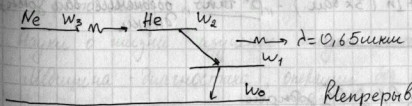 Ne W₃ He W₂
λ=0,65мкм
W₁
W₀
Непрерыв